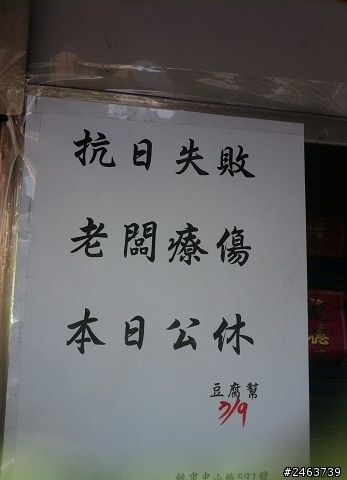 抗日失敗
老闆療傷
本日公休
豆腐幫
7/9
中山路591號
#2463739